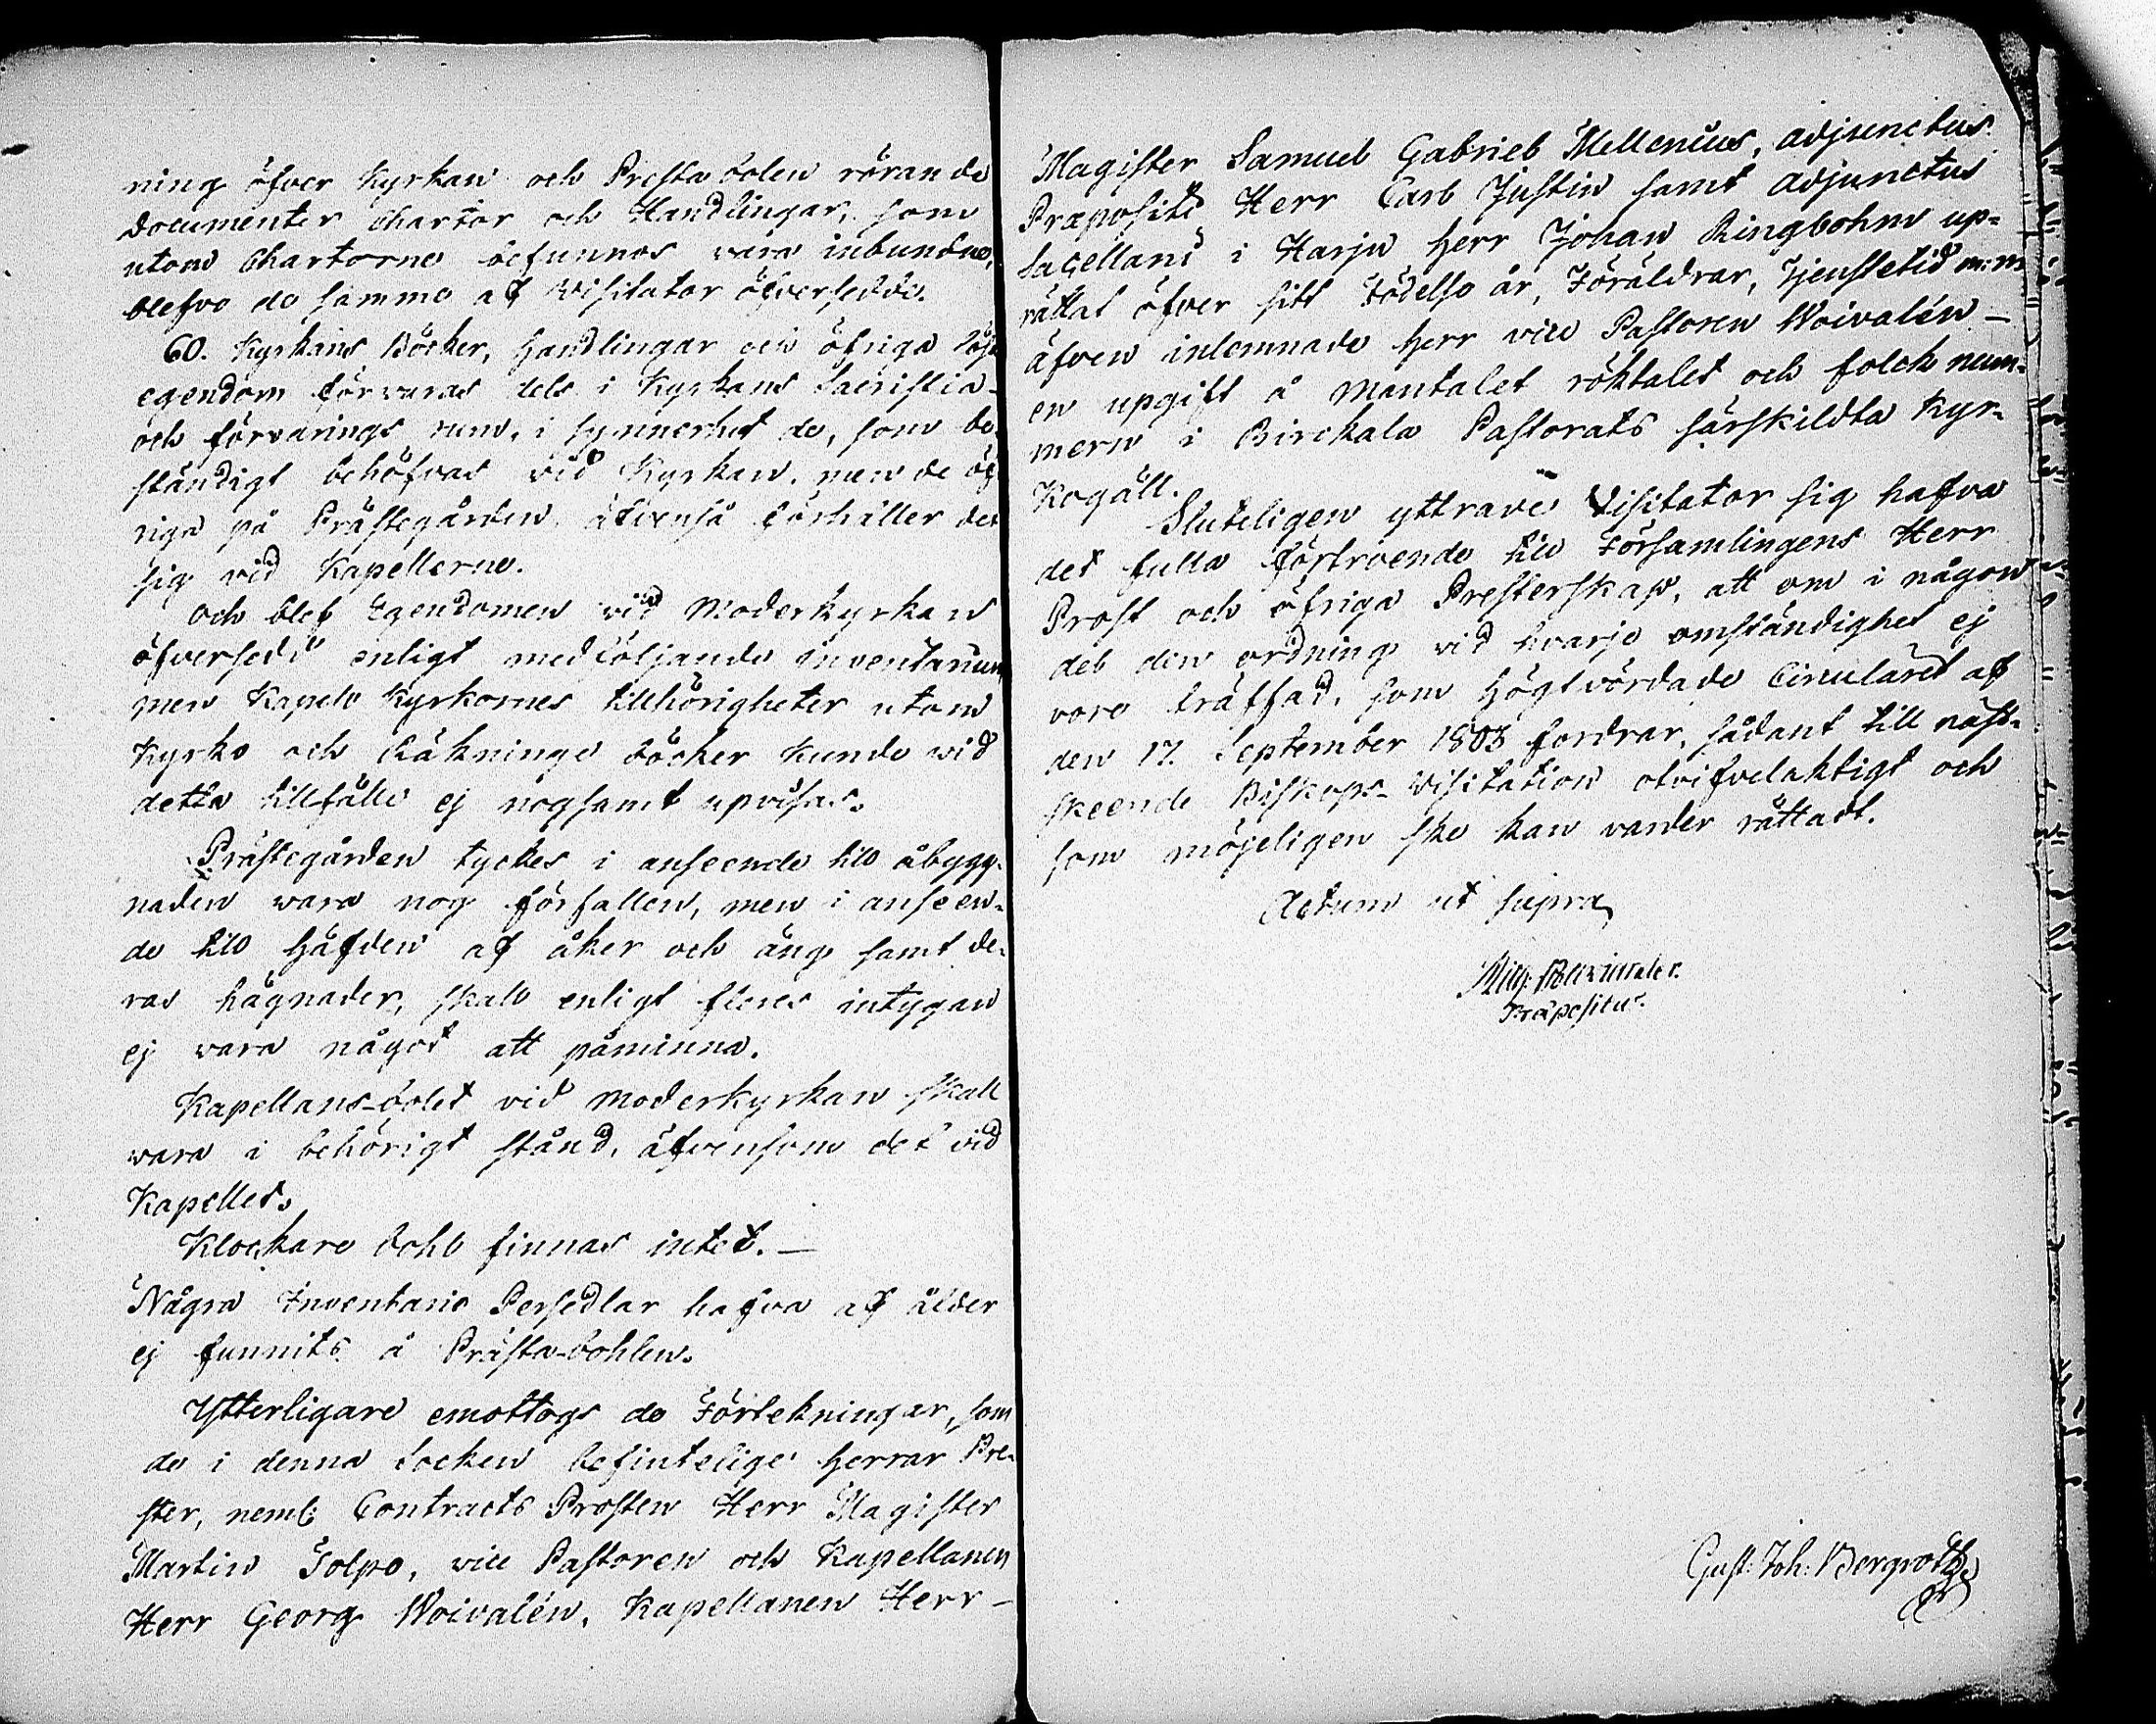 ning öfver Kyrkan och Presta bolen rörande
documenter chartor och Handlingar, som
utom Chartorne befunnos vara inbundne,
blefvo de samme af Visitator öfversedde.
60. Kyrkans Böcker, Handlingar och öfriga lösa
egendom förvaras dels i Kyrkans Sacristia
och förvarings rum, i synnerhet de, som be-
ständigt behöfvas vid Kyrkan, men de öf-
riga på Prästegården, äfvenså förhåller det
sig vid Kapellerne.
Och blef Egendomen vid Moderkyrkan
öfversedd enligt medföljande inventarium
men Kapell Kyrkornes tillhörigheter utom
Kyrko och Räknings Böcker kunde vid
detta tillfälle ej nogsamt upvisas.
Prästegården tyckes i anseende till åbygg-
naden vara nog förfallen, men i anseen-
de till Häfden af åker och äng samt de-
ras hägnader, skall enligt fleres intygan
ej vara något att påminna.
Kapellans-bolet vid Moderkyrkan skall
vara i behörigt stånd, äfvensom det vid
Kapellet.
Klockare bohl finnas intet. —
Några Inventarie Persedlar hafva af ålder
ej funnits å Prästa-bohlen.
Ytterligare emottogs de Förtekningar, som
de i denna Socken befintelige Herrar Pre-
ster, neml: Contracts Prosten Herr Magister
Martin Tolpo, vice Pastoren och Kapellanen
Herr Georg Woivalén, Kapellanen Herr —
Magister Samuel Gabriel Mellenius, adjunctus
Præpositi Herr Carl Justin samt adjunctus
Sacellani i Harju Herr Johan Ringbohm up-
rättat öfver sitt Födelse år, Föräldrar, Tjenstetid m: m
äfven inlemnade Herr vice Pastoren Woivalén —
en upgift å Mantalet röktalet och folck num-
mern i Birckala Pastorats särskildta Kyr-
kogäll.
Sluteligen yttrade Visitator sig hafva
det fulla förtroende till Församlingens Herr
Prost och öfriga Presterskap, att om i någon
del den ordning vid hvarje omständighet ej
vore träffad, som Högtvördade Circulairet af
den 17. September 1803 fordrar, sådant till näst-
skeende Biskops-Visitation otvifvelaktigt och
som möjeligen ske kan varder rättadt.
Actum ut supra
Præpositus.
Gust: Joh: Bergroth